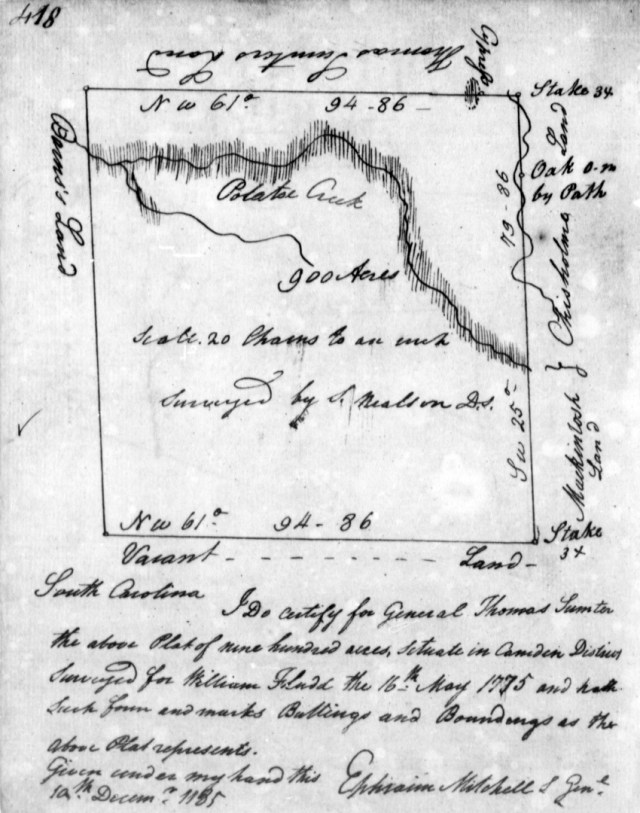 418
Thomas Sumters Land
Cyprus
Stake 3x
N W 61° 94 - 86 -
Oak o-m
by Path
Land
Chisholms
79 - 86
Barns's Land
Potatoe Creek
900 Acres
Scale. 20 Chains to an inch
Surveyed by S. Nealson D.S.
Sw 25°
Mackintosh
Land
N W 61° 94 - 86
Stake
3x
Vacant - - - - - - - Land -
South Carolina
I Do certify for General Thomas Sumter
the above Plat of nine hundred acres, situate in Camden District
Surveyed for William Fludd the 16th May 1775 and hath
Such form and marks Buttings and Boundings as the
above Plat represents.
Given under my hand this
12th Decemr 1785
Ephraim Mitchell S Genl